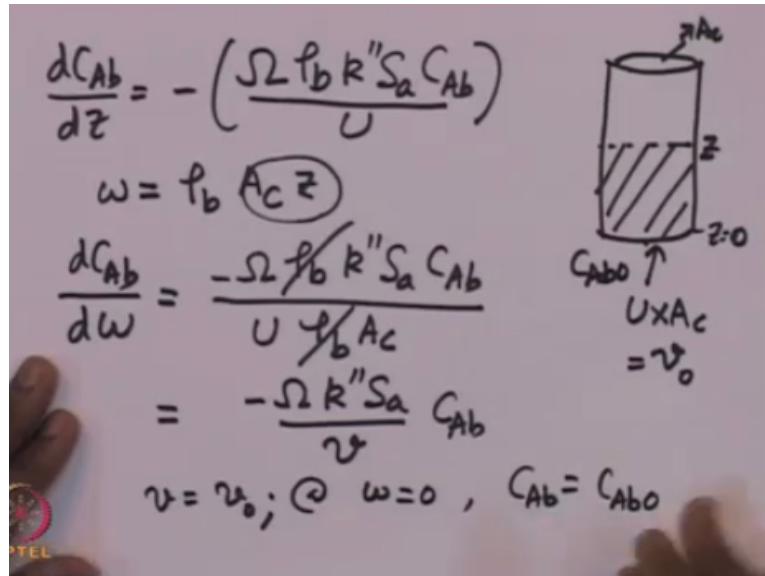 dC_Ab/dz = - (Ω ρ_b k'' S_a C_Ab / U)
ω = ρ_b A_c z
dC_Ab/dω = -Ω ρ_b k'' S_a C_Ab / U ρ_b A_c
= -Ω k'' S_a / v C_Ab
v = v_0; @ ω=0, C_Ab = C_Ab0
A_c
z
z=0
C_Ab0
U×A_c
= v_0
PTEL